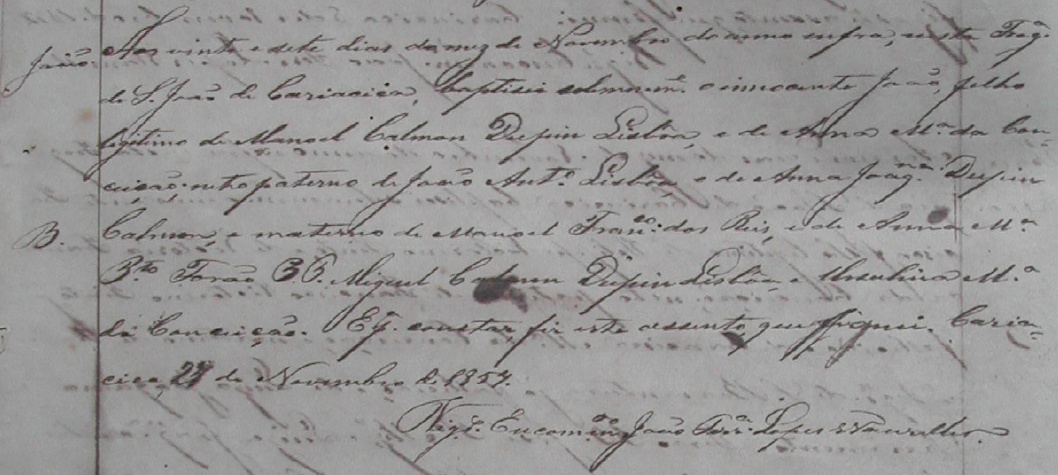 João Aos vinte e sete dias do mez de Novembro do anno infra, nesta Freg.ª
de S. João de Cariacica, baptisei solemnm.e o innocente João, filho
legitimo de Manoel Calmon Dupin Lisbôa, e de Anna M.ª da Con-
ceição: neto paterno de João Ant.º Lisbôa, e de Anna Joaq.na Dupin
B. Calmon, e materno de Manoel Fran.co dos Reis, e de Anna M.ª
Forão PP. Miguel Calmon Dupin Lisbôa, e M.ª
da Conceição. E p.ª constar fiz este assento, que assignei. Caria-
cica, 27 de Novembro de 1857.
Vig.º Encomm.do João Lopes